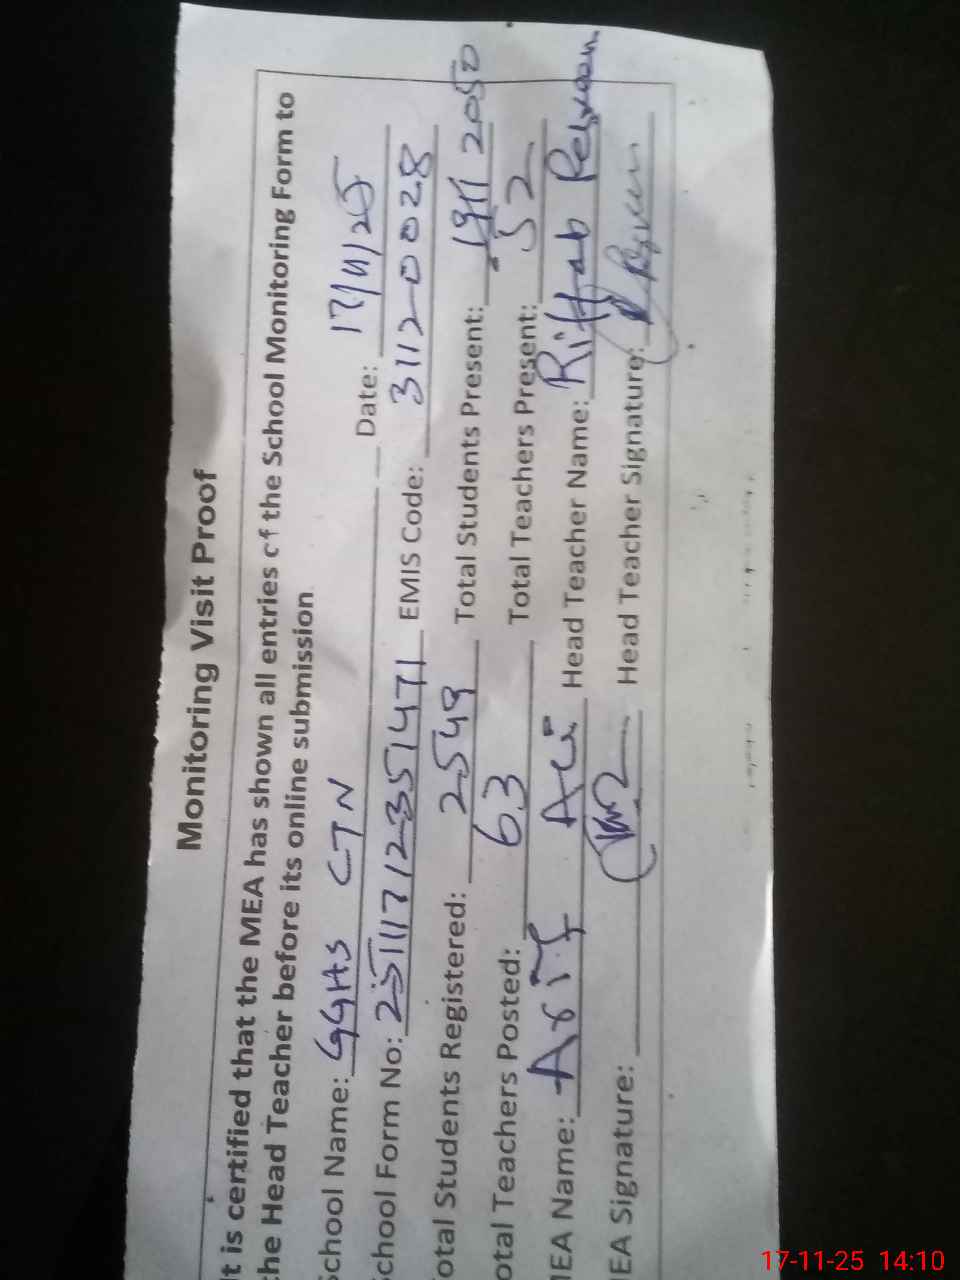 Monitoring Visit Proof
It is certified that the MEA has shown all entries of the School Monitoring Form to
the Head Teacher before its online submission.
School Name: GGHS CTN Date: 17/11/25
School Form No: 25111712351471 EMIS Code: 31120028
Total Students Registered: 2549 Total Students Present: 1911 2050
Total Teachers Posted: 63 Total Teachers Present: 52
MEA Name: Arif Ali Head Teacher Name: Riffab Perveen
MEA Signature: Head Teacher Signature:
17-11-25 14:10